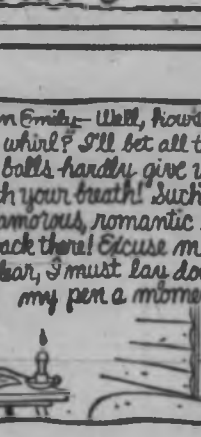 Emily— Well, how's
whirl? I'll bet all t
balls hardly give
your breath! Such
amorous, romantic
ack there! Excuse m
ear, I must lay do
my pen a mome